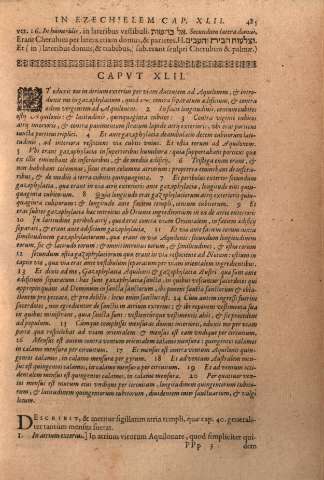 IN EZECHIELEM CAP. XLII. 485
ver. 26. In humerulis, in lateribus vestibuli.
Erant Cherubini per latera etiam domus, & parietes.
Et (in) lateribus domus, & trabibus, sub. erant sculpti Cherubim & palmæ.)
CAPVT XLII.
ET eduxit me in atrium exterius per viam ducentem ad Aquilonem, & introduxit
me in gazophylacium, quod erat contra separatum ædificium, & contra
ædem vergentem ad Aquilonem. 2 In facie longitudinis, centum cubitos
ostij Aquilonis: & latitudinis, quinquaginta cubitos: 3 Contra viginti cubitos
atrij interioris, & contra pavimentum stratum lapide atrij exterioris, ubi erat porticus
iuncta porticui triplici. 4 Et ante gazophylacia deambulatio decem cubitorum latitudinis,
ad interiora respiciens viæ cubiti unius. Et ostia eorum ad Aquilonem.
5 Ubi erant gazophylacia in superioribus humiliora: quia supportabant porticus quæ
ex illis eminebant de inferioribus, & de medijs ædificij. 6 Tristega enim erant, &
non habebant columnas, sicut erant columnæ atriorum: propterea eminebant de inferioribus,
& de medijs à terra cubitis quinquaginta. 7 Et peribolus exterior secundum
gazophylacia, quæ erant in via atrij exterioris ante gazophylacia, longitudo eius quinquaginta
cubitorum. 8 Quia longitudo erat gazophylaciorum atrij exterioris quinquaginta
cubitorum: & longitudo ante faciem templi, centum cubitorum. 9 Et
erat subter gazophylacia hæc introitus ab Oriente ingredientium in ea de atrio exteriori.
10 In latitudine periboli atrij, quod erat contra viam Orientalem, in faciem ædificij
separati, & erant ante ædificium gazophylacia. 11 Et via ante faciem eorum iuxta
similitudinem gazophylaciorum, quæ erant in via Aquilonis: secundum longitudinem
eorum, sic & latitudo eorum: & omnis introitus eorum, & similitudines, & ostia eorum.
12 Secundum ostia gazophylaciorum quæ erant in via respiciente ad Notum: ostium in
capite viæ, quæ via erat ante vestibulum separatum per viam orientalem ingredientibus.
13 Et dixit ad me, Gazophylacia Aquilonis & gazophylacia Austri, quæ sunt ante
ædificium separatum: hæc sunt gazophylacia sancta, in quibus vescuntur sacerdotes qui
appropinquant ad Dominum in sancta sanctorum: ibi ponent sancta sanctorum & oblationem
pro peccato, & pro delicto, locus enim sanctus est. 14 Cum autem ingressi fuerint
sacerdotes, non egredientur de sanctis in atrium exterius: & ibi reponent vestimenta sua
in quibus ministrant, quia sancta sunt: vestienturque vestimentis alijs, & sic procedent
ad populum. 15 Cumque complesset mensuras domus interioris, eduxit me per viam
portæ quæ respiciebat ad viam orientalem: & mensus est eam undique per circuitum.
16 Mensus est autem contra ventum orientalem calamo mensuræ: quingentos calamos
in calamo mensuræ per circuitum. 17 Et mensus est contra ventum Aquilonis quingentos
calamos, in calamo mensuræ per gyrum. 18 Et ad ventum Australem quingentos
calamos mensus est in calamo mensuræ per circuitum. 19 Et ad ventum occidentalem
mensus est quingentos calamos, in calamo mensuræ. 20 Per quatuor ventos
mensus est murum eius undique per circuitum, longitudinem quingentorum cubitorum,
& latitudinem quingentorum cubitorum, dividentem inter sanctuarium, & vulgi
locum.
DESCRIBIT, & metitur sigillatim atria templi, quæ cap. 40. generaliter
tantum mensus fuerat.
1. In atrium exterius.] In atrium virorum Aquilonare, quod simpliciter quidem
PPp 3 dem